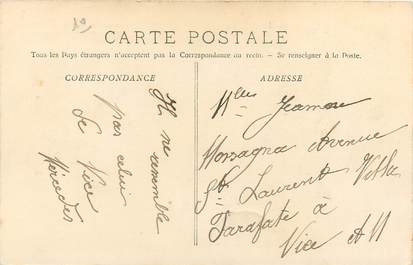 19
CARTE POSTALE
Tous les Pays étrangers n'acceptent pas la Correspondance au recto. - Se renseigner à la Poste.
CORRESPONDANCE
Il ne ressemble
pas celui
de Nice
Mercedes
ADRESSE
Mlle Jeanne
Avenue
St Laurent Villa
à
Nice